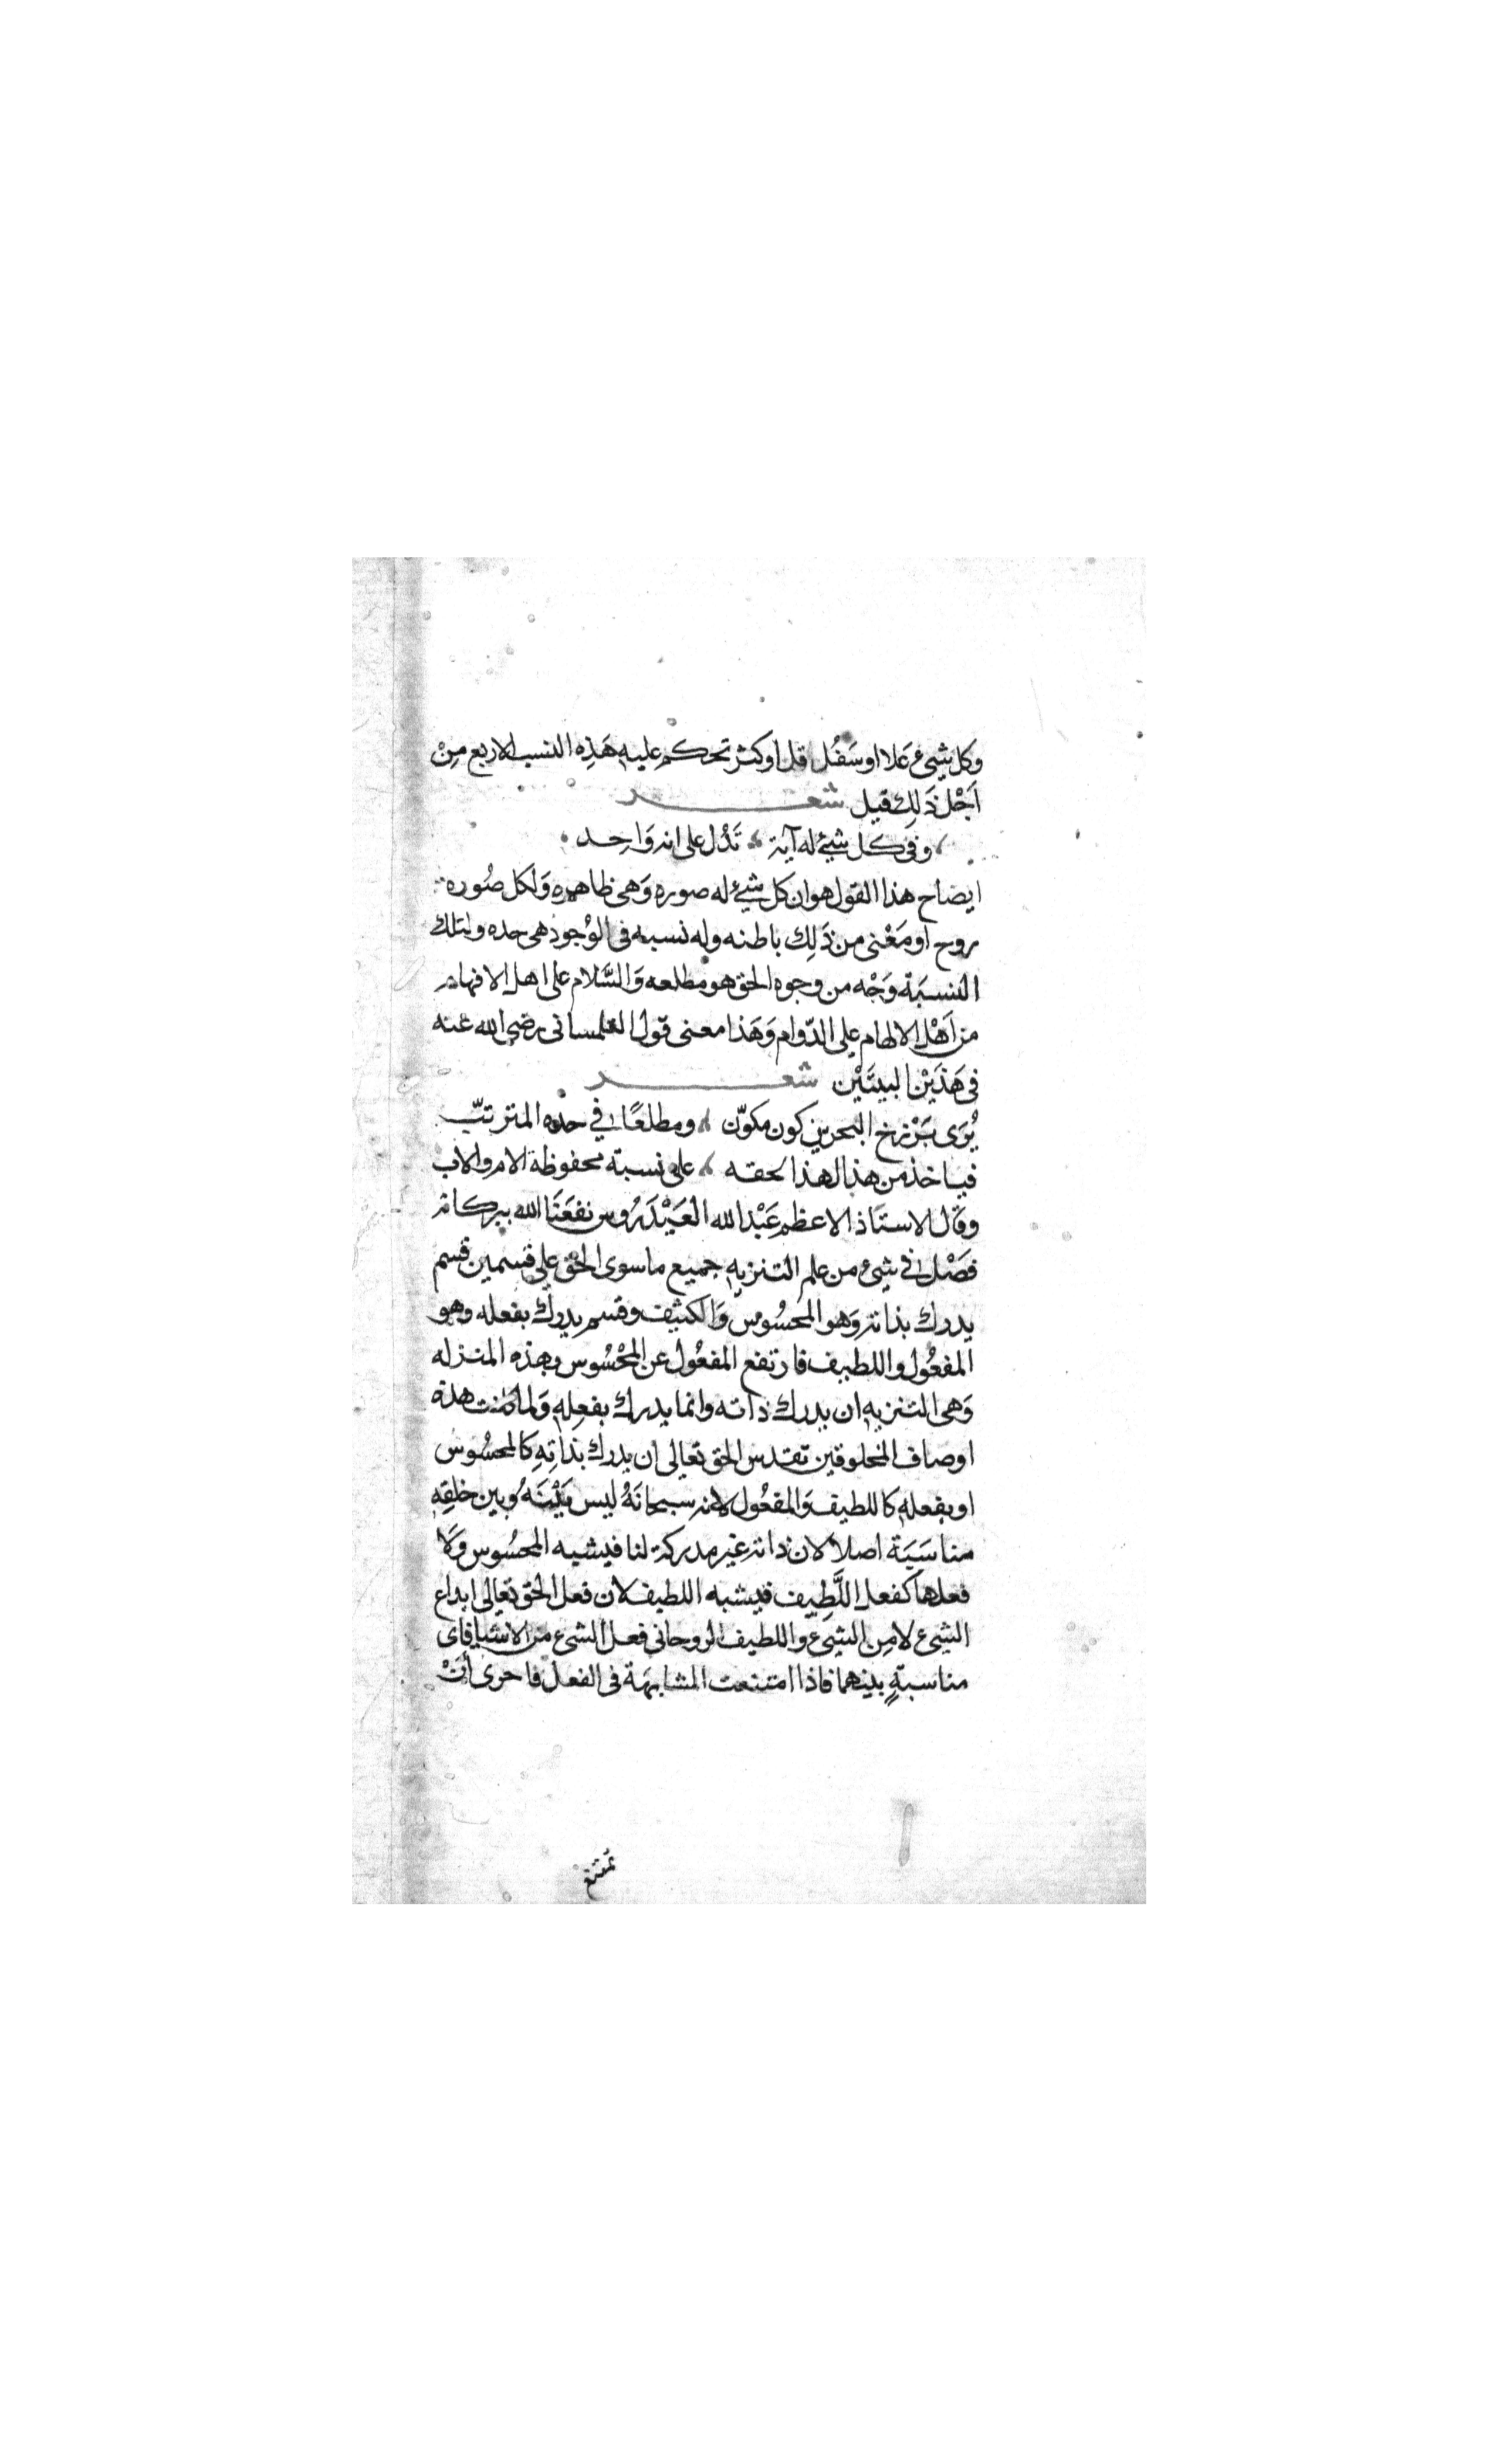 وكل شيء عَلا او سَفُل قل او كثر تحكم عليه هَذِه النسب الاربع مِنْ
اَجْل ذَلِك قيل شعر
وفى كل شيئ له آية تَدُل على انه وَاحِد
ايضاح هذا القول هو ان كل شيئ له صوره وَهى ظاهره وَلكل صُوره
روح او مَعْنى من ذَلِك باطنه وله نسبه فى الوُجود هى حده ولتلك
النسبَة وَجْه من وجوه الحق هو مطلعه وَالسَّلام على اهل الافهام
من اَهْل الالهام على الدّوام وَهَذا معنى قول التلمسانى رضى الله عنه
فى هَذَيْن البيتَيْن شعر
يُرَى بَرْزخ البحرين كون مكوّن ومطلعًا فى حده المترتبّ
فياخذ من هذا لهذا بحقه على نسبة محفوظة الام والاب
وقال الاستَاذ الاعظم عَبْد الله العَيْدَرُوس نفعَنَا الله ببركاته
فَصْل فى شيء من علم التنزيه جميع ما سوى الحق على قسمين قسم
يدرك بذاته وَهو المحسُوس وَالكثيف وقسم يدرك بفعله وهو
المفعُول واللطيف فارتفع المفعُول عن المحْسُوس بهذه المنزله
وَهى التنزيه ان يدرك ذاته وانما يدرك بفعِله وَلما كانت هذه
اوصاف المخلوقين تقدس الحق تعالى ان يدرك بذاتِهِ كالمحسُوس
او بفعله كاللطيف وَالمفعُول لانه سبحانَهُ ليس بَيْنَهُ وبين خلقِهِ
مناسَبَة اصلا لان ذاته غير مدركة لنا فيشبه المحسُوس وَلَا
فعلها كفعل اللَّطِيف فيشبه اللطيف لان فعل الحق تعالى ابداع
الشيء لا مِن الشيء واللطيف الروحانى فعل الشيء من الاشيا فاى
مناسبةٍ بينهما فاذا امتنعت المشابهَة فى الفعل فاحرى اَنْ
تمتنع